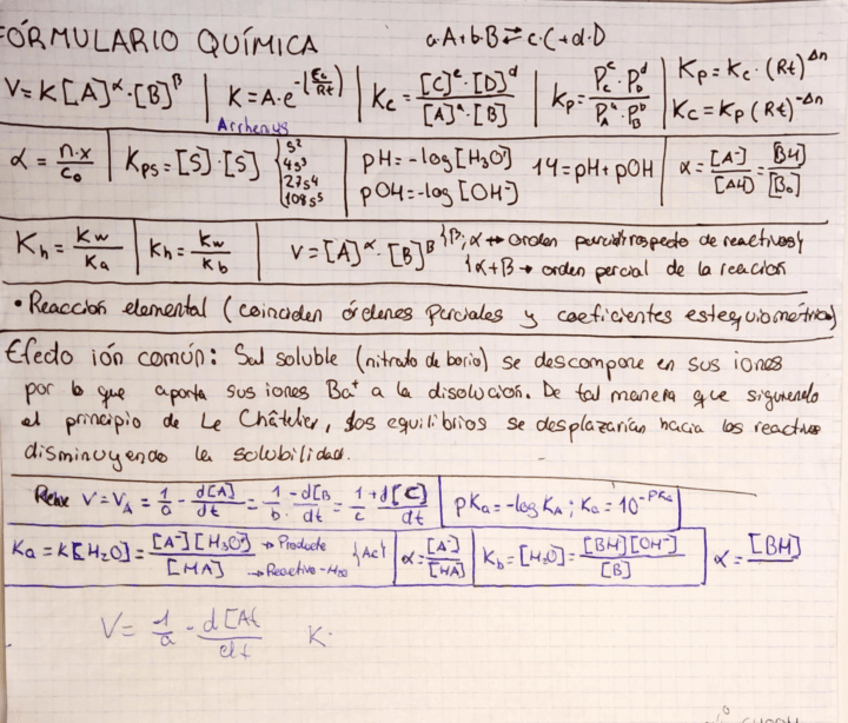 FÓRMULARIO QUÍMICA a·A+b·B⇄c·C+d·D
V=K[A]^α·[B]^β | K=A·e^-(Ea/Rt) | Kc=[C]^c·[D]^d/[A]^a·[B] | Kp=P_C^c·P_D^d/P_A^a·P_B^b | Kp=Kc·(Rt)^Δn
Arrhenius Kc=Kp(Rt)^-Δn
α=n·x/c₀ | Kps=[S]·[S] { s² 4s³ 27s4 108s⁵ | pH=-log[H₃O⁺] 14=pH+pOH | α=[A⁻]/[AH]=[BH]/[B₀]
pOH=-log[OH⁻]
Kh=Kw/Ka | Kh=Kw/Kb | V=[A]^α·[B]^β {β,α → orden parcial respecto de reactivos}
{α+β → orden percial de la reacción
• Reacción elemental (coinciden órdenes perciales y coeficientes estequiométricos)
Efecto ión común: Sal soluble (nitrato de bario) se descompone en sus iones
por lo que aporta sus iones Ba⁺ a la disolución. De tal manera que siguiendo
el principio de Le Châtelier, los equilibrios se desplazarían hacia los reactivos
disminuyendo la solubilidad.
V=V_A=1/a -d[A]/dt=1/b·-d[B/dt=1/c +d[C]/dt | pKa=-log KA; Ka=10^-pKa
Ka=K[H₂O]=[A⁻][H₃O⁺]/[HA] → Producto → Reactivo-H₂O | α=[A⁻]/[HA] | Kb=[H₂O]=[BH][OH⁻]/[B] | α=[BH]
V=1/a -d[At/dt K·